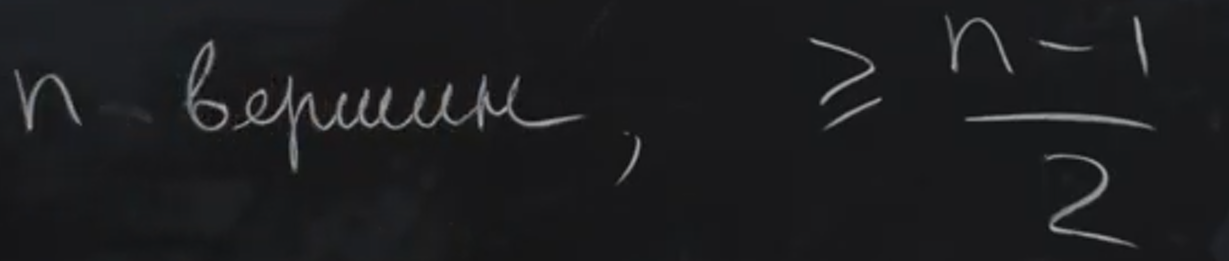 n - вершин, ≥ \frac{n-1}{2}